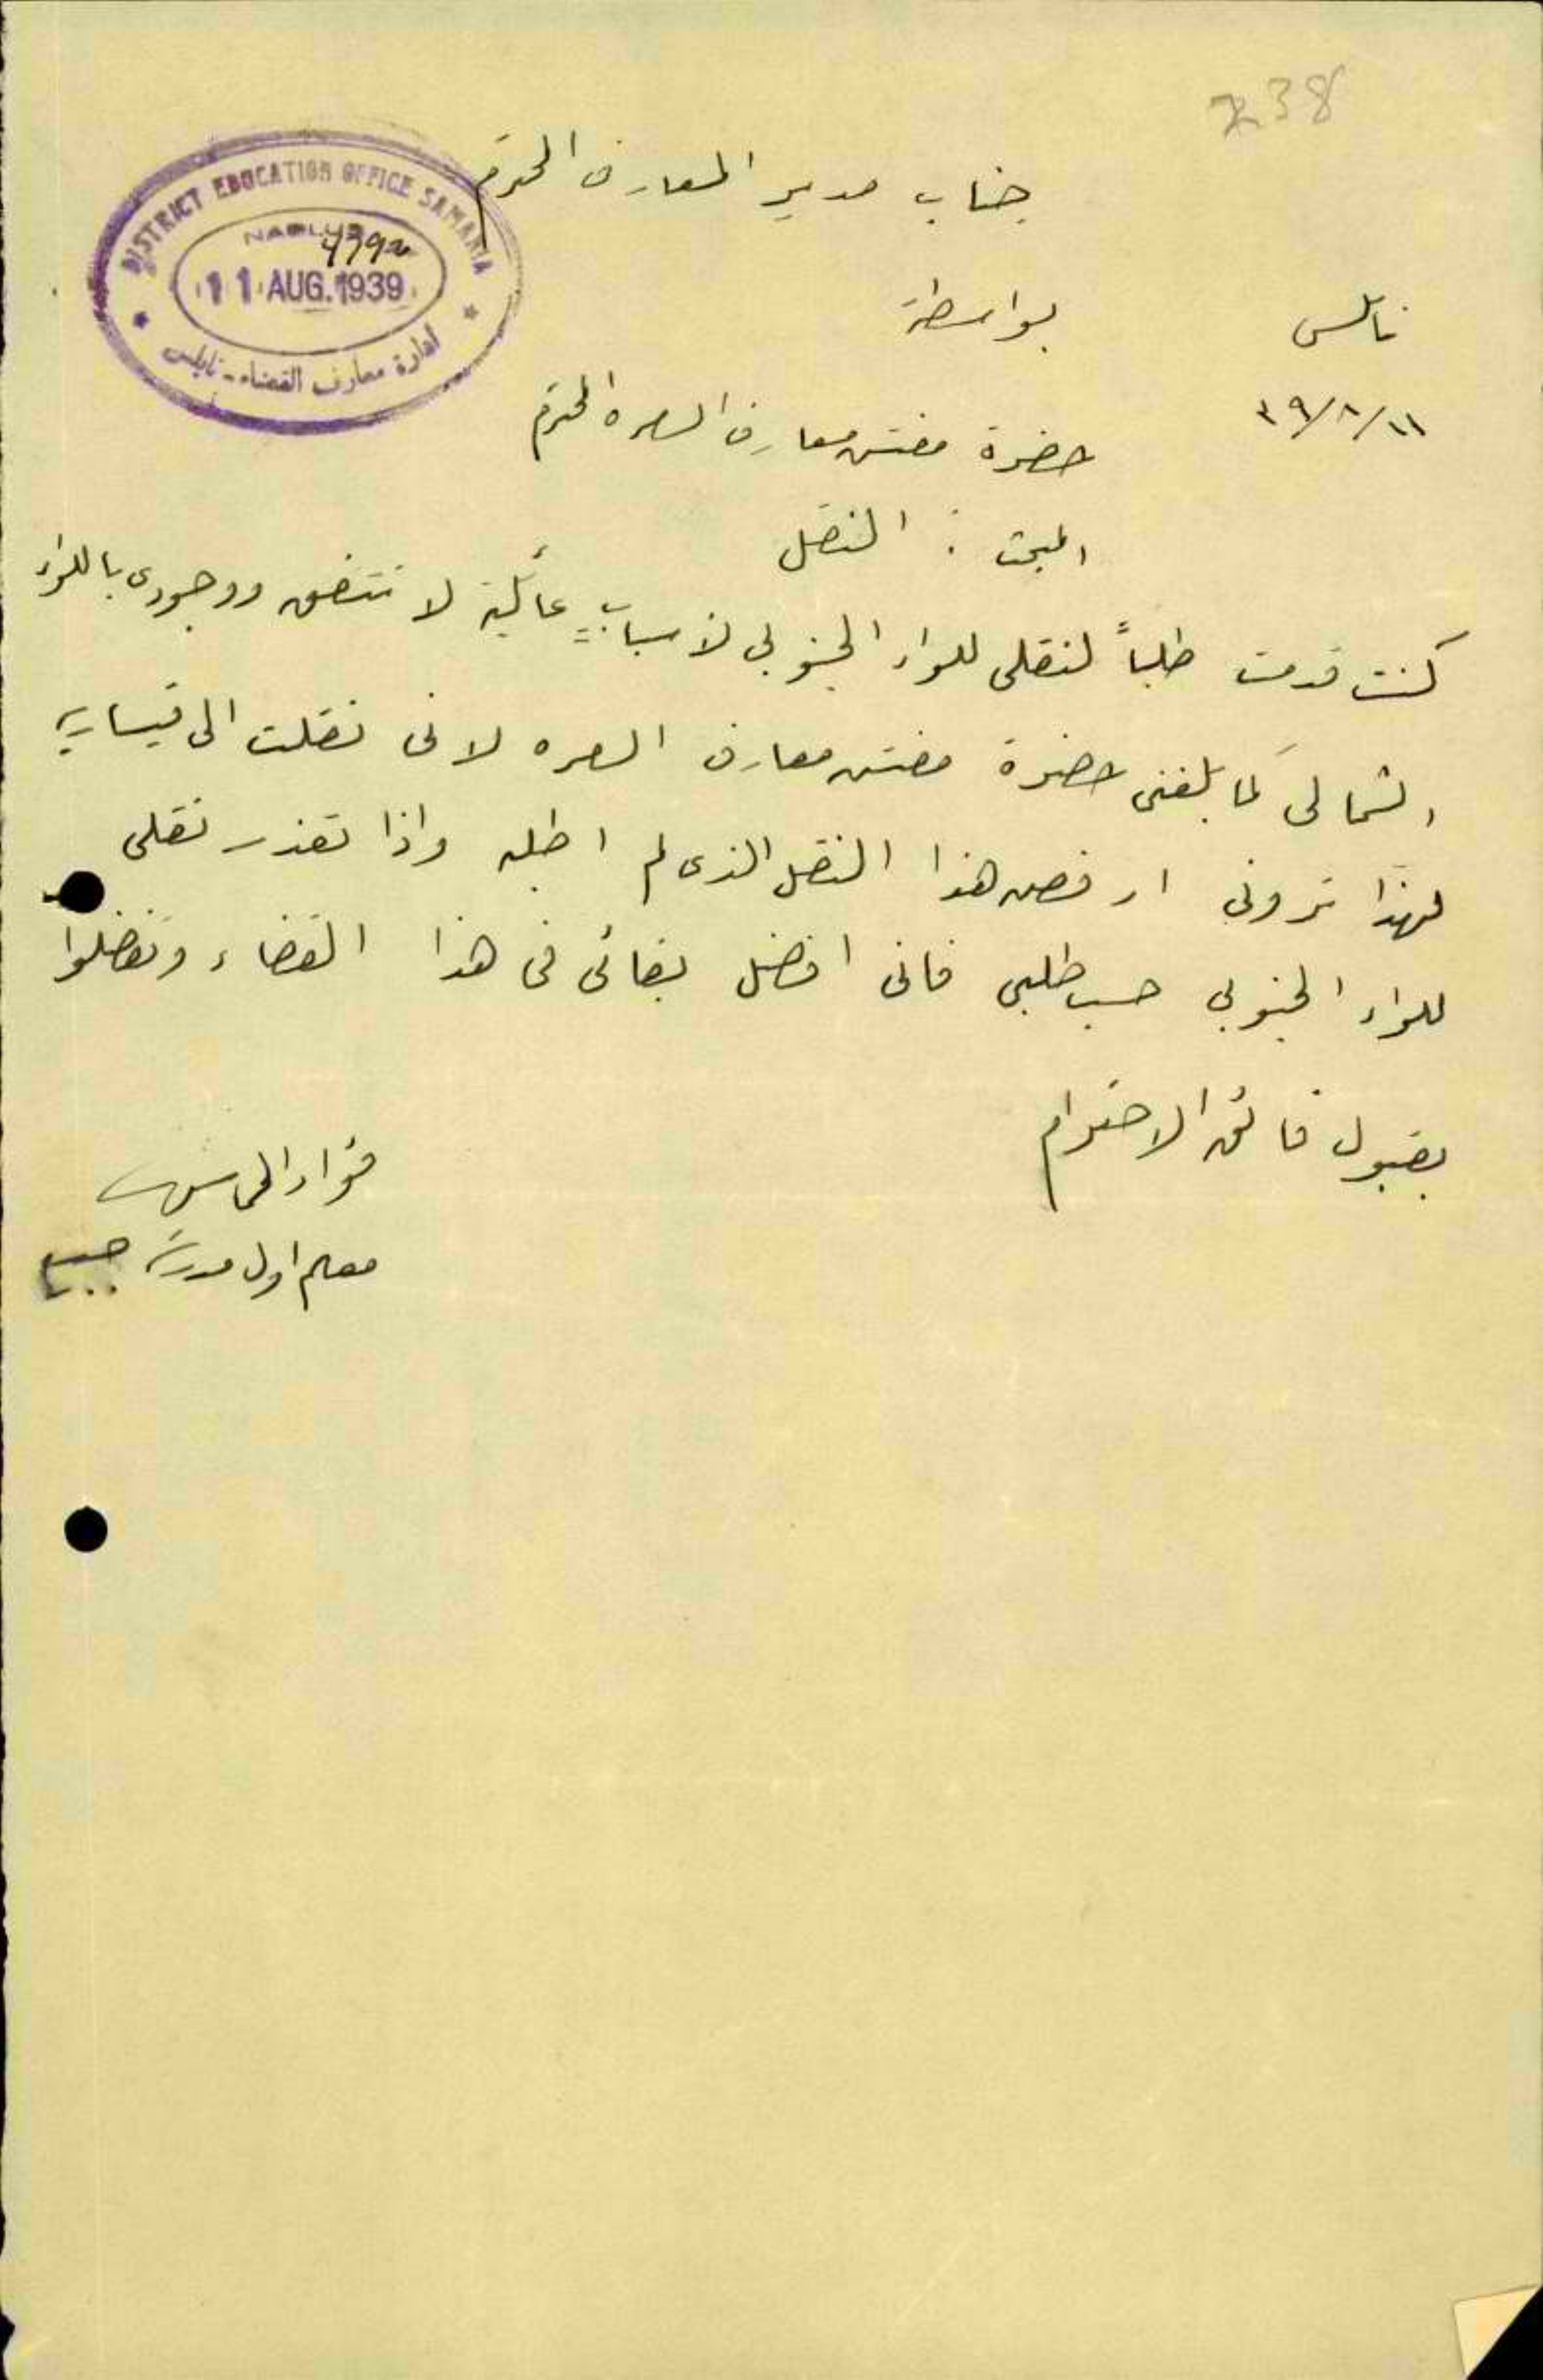 238
جناب مدير المعارف المحترم
DISTRICT EDUCATION OFFICE SAMARIA
NABLUS
11 AUG. 1939
ادارة معارف القضاء - نابلس
نابلس
بواسطة
١١/٨/٣٩
حضرة مفتش معارف السمره المحترم
المبحث : النقل
كنت قدمت طلباً لنقلي للواء الجنوبي لأسبابٍ عائلية لا تتفق ووجودي باللواء
الشمالي كما بلغني حضرة مفتش معارف السمره لاني نقلت الى قيسارية
لهذا تروني ارفض هذا النقل الذي لم اطلبه واذا تعذر نقلي
للواء الجنوبي حسب طلبي فاني افضل بقائي في هذا القضاء وتفضلوا
بقبول فائق الاحترام
فؤاد
معلم اول مدرسة